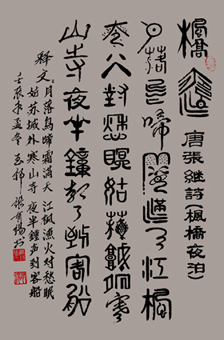 唐張继詩楓橋夜泊
月落烏啼霜滿天江楓
漁火對愁眠姑蘇城外寒
山寺夜半鐘聲到客船
释文月落烏啼霜满天江楓漁火对愁眠
姑苏城外寒山寺夜半鐘声到客船
壬辰年孟冬